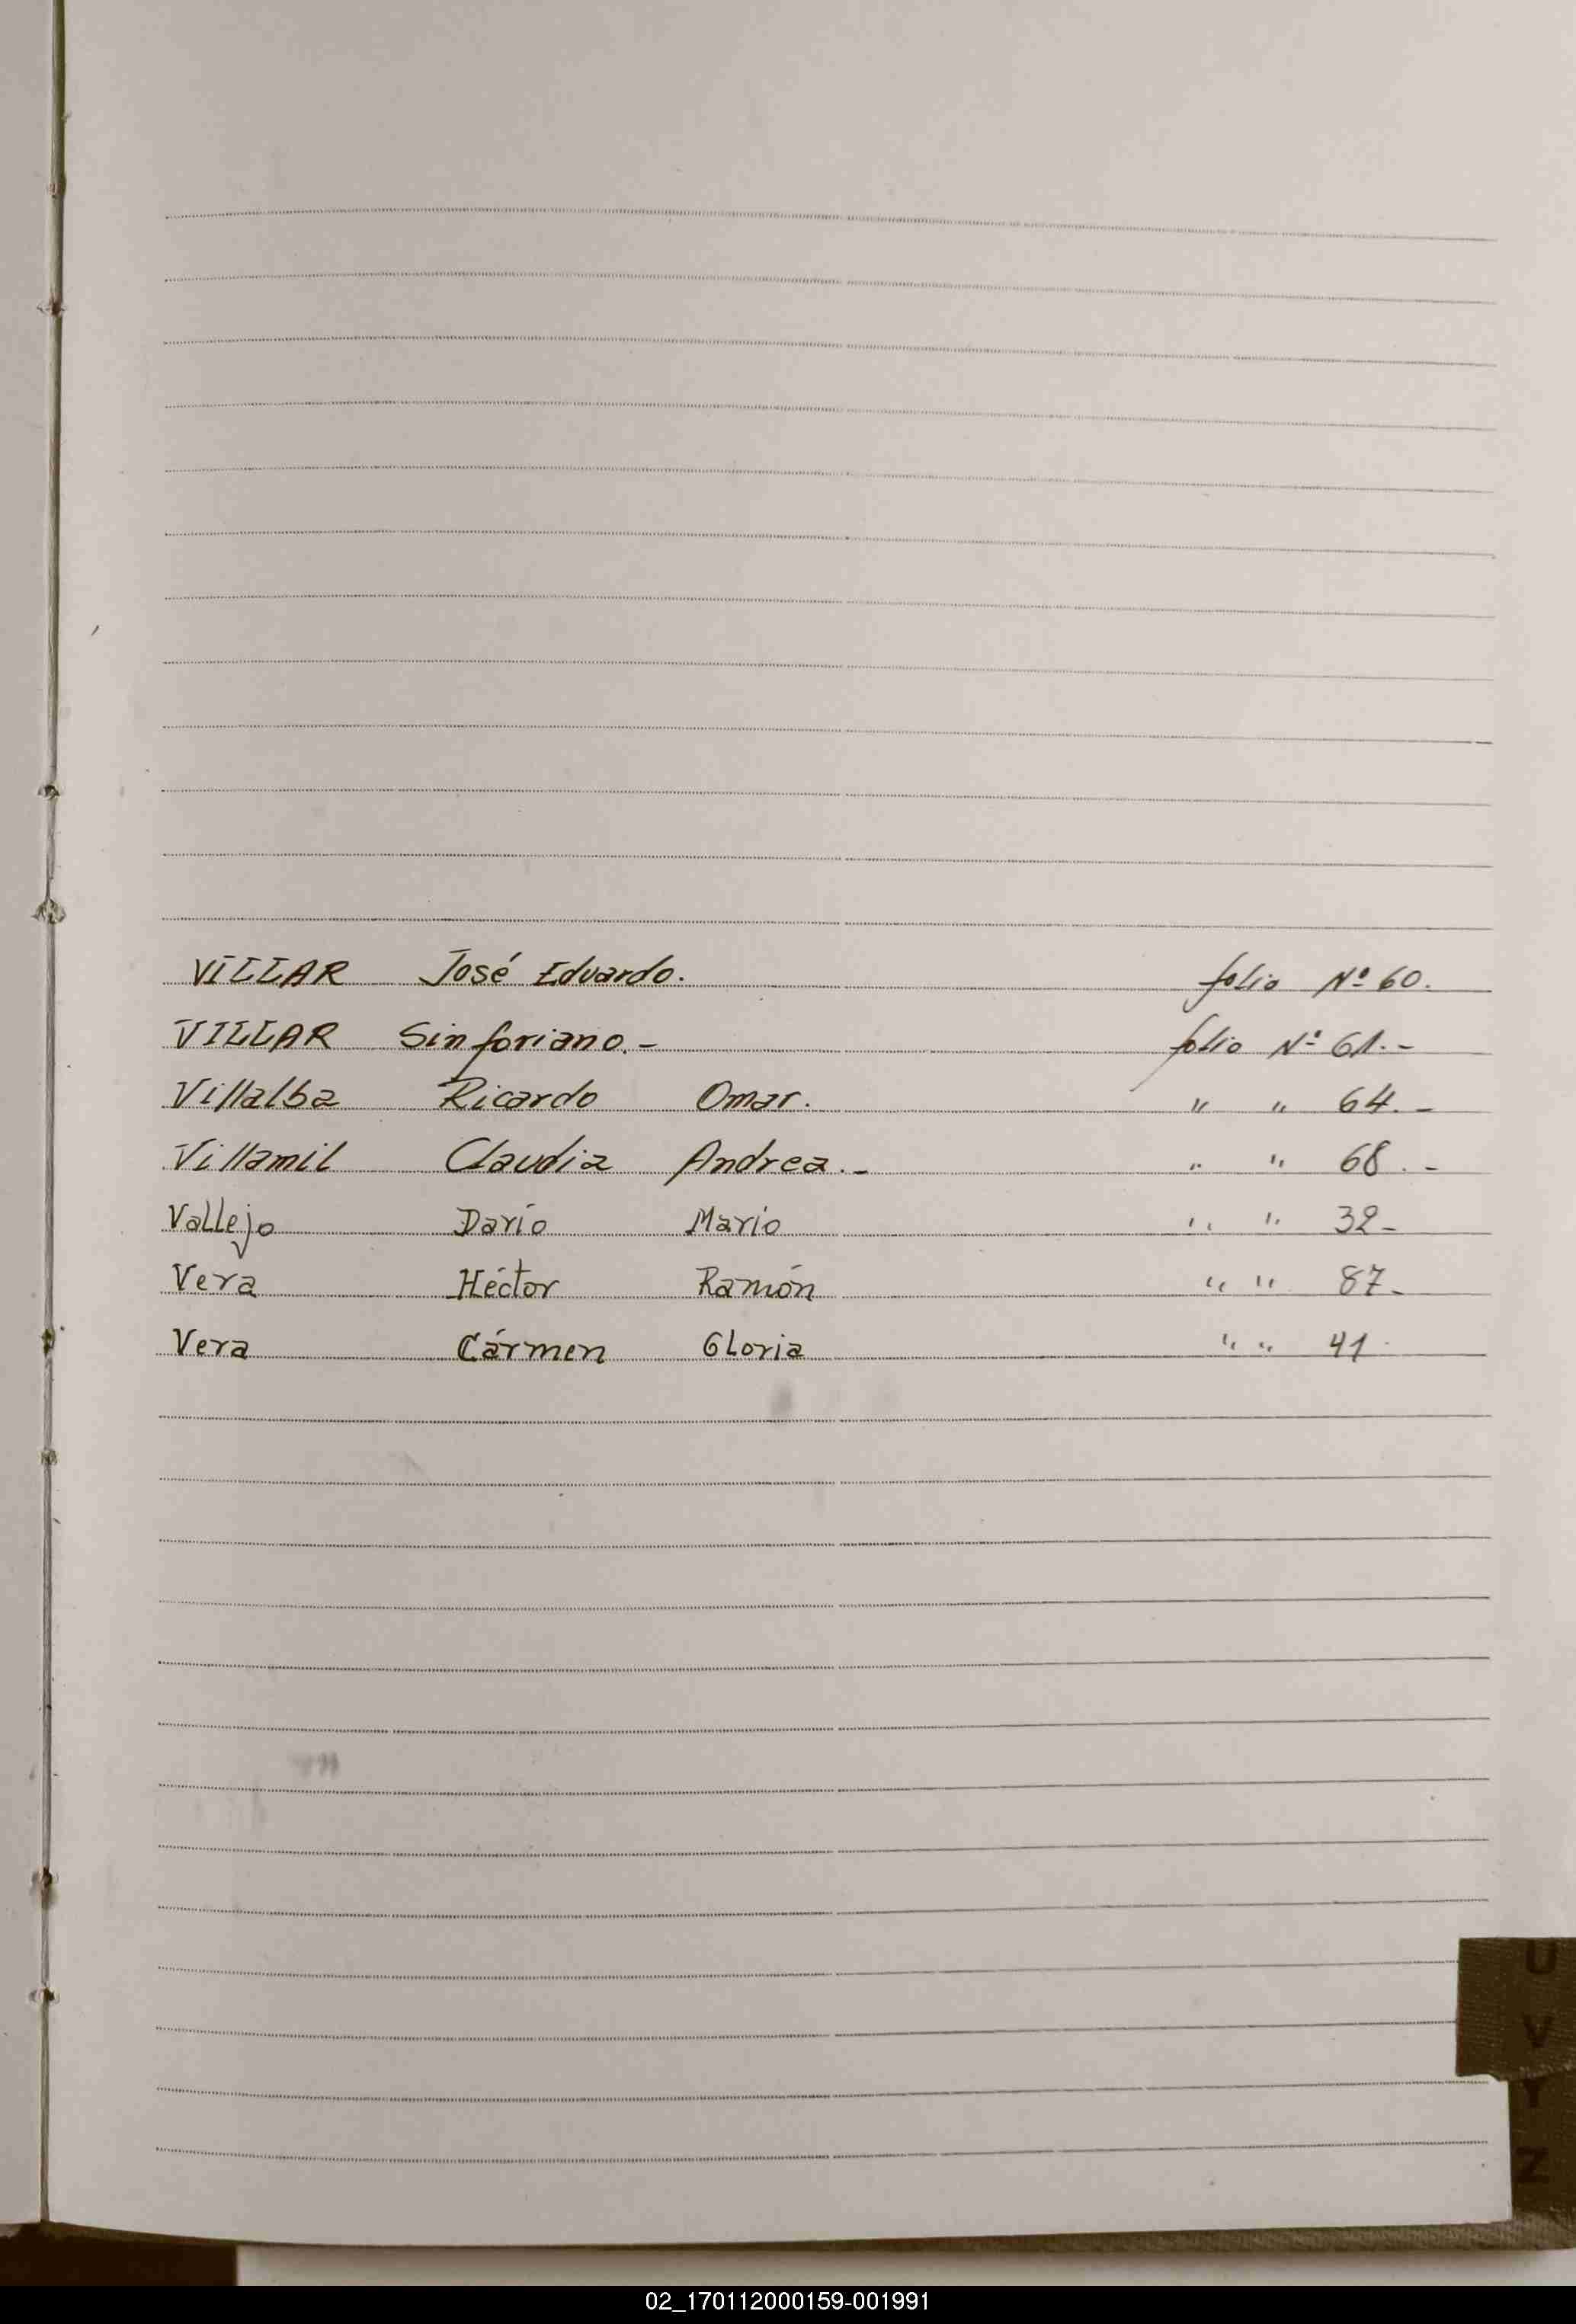 VILLAR José Eduardo. folio Nº 60.
VILLAR Sinforiano.- folio Nº 61.-
Villalba Ricardo Omar. " " 64.-
Villamil Claudia Andrea.- " " 68.-
Vallejo Darío Mario " " 32-
Vera Héctor Ramón " " 87-
Vera Cármen Gloria " " 41
U
V
Y
Z
02_170112000159-001991